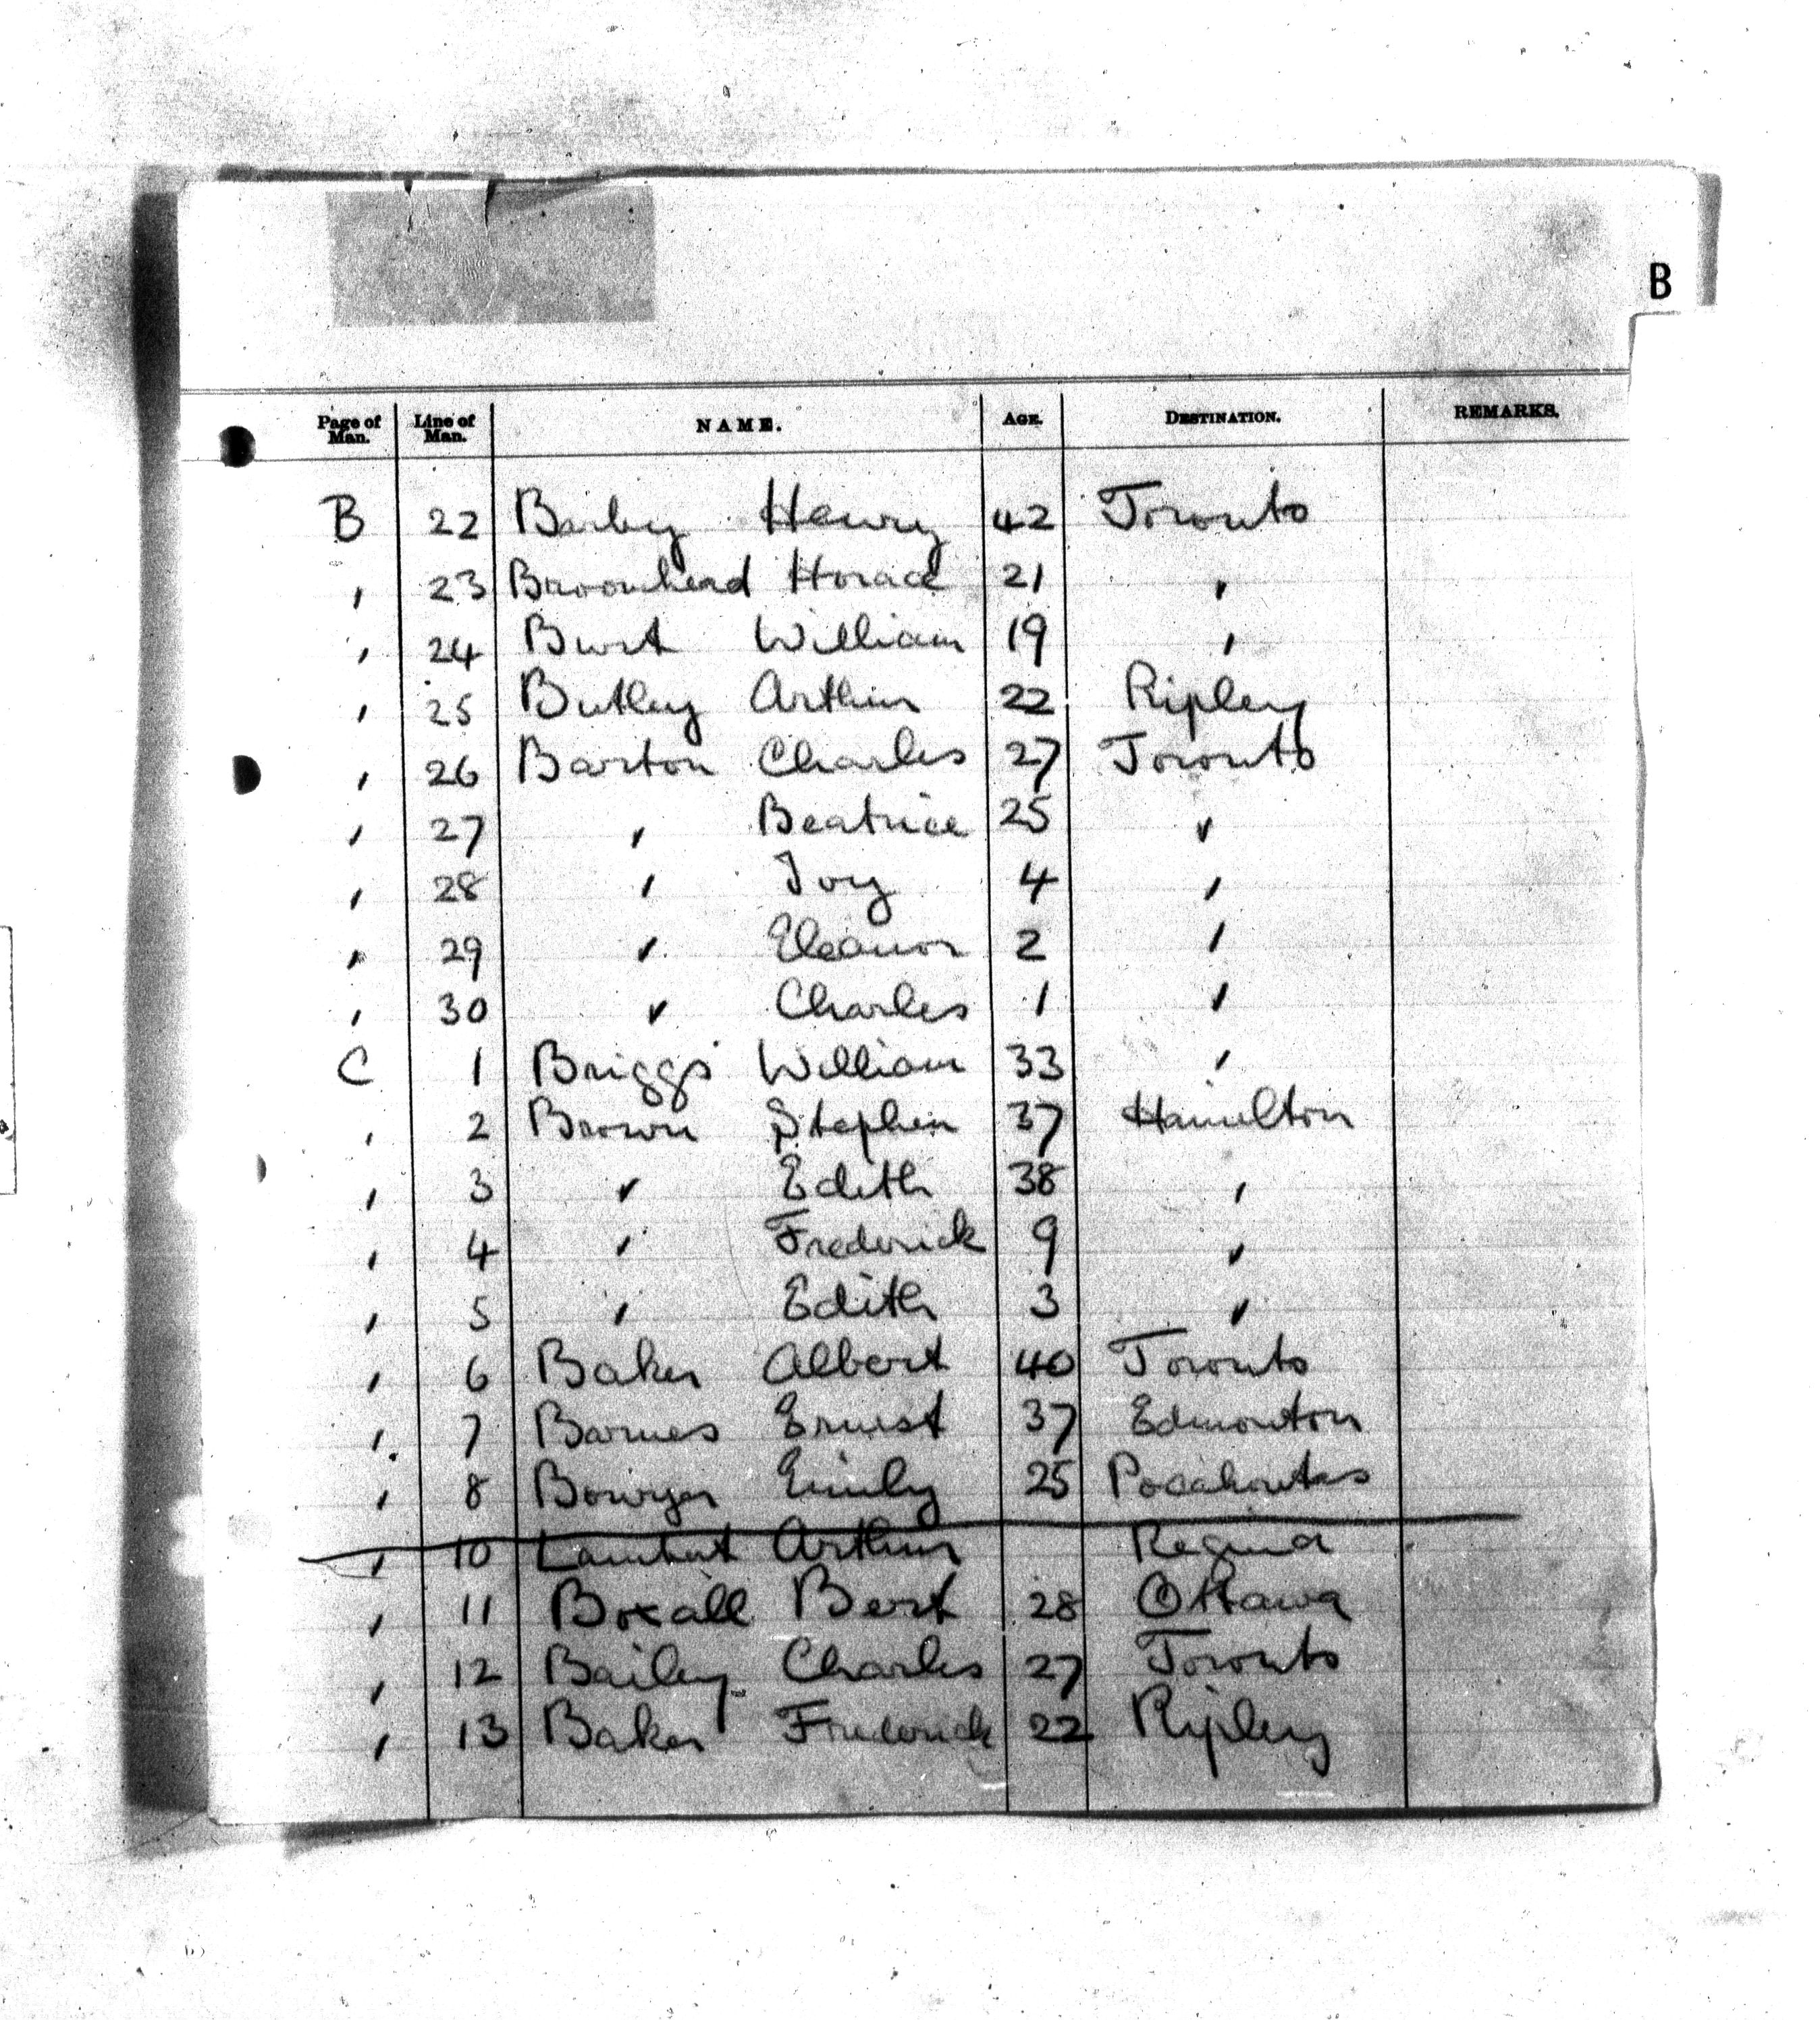 B
Page of Man. Line of Man. NAME. AGE. DESTINATION. REMARKS.
B 22 Barby Henry 42 Toronto
" 23 Broomhead Horace 21 "
" 24 Burt William 19 "
" 25 Butley Arthur 22 Ripley
" 26 Barton Charles 27 Toronto
" 27 " Beatrice 25 "
" 28 " Joy 4 "
" 29 " Eleanor 2 "
" 30 " Charles 1 "
C 1 Briggs William 33 "
" 2 Brown Stephen 37 Hamilton
" 3 " Edith 38 "
" 4 " Frederick 9 "
" 5 " Edith 3 "
" 6 Baker Albert 40 Toronto
" 7 Barnes Ernest 37 Edmonton
" 8 Bowyer Emily 25 Pocahontas
" 10 Lambert Arthur Regina
" 11 Boxall Bert 28 Ottawa
" 12 Bailey Charles 27 Toronto
" 13 Baker Frederick 22 Ripley